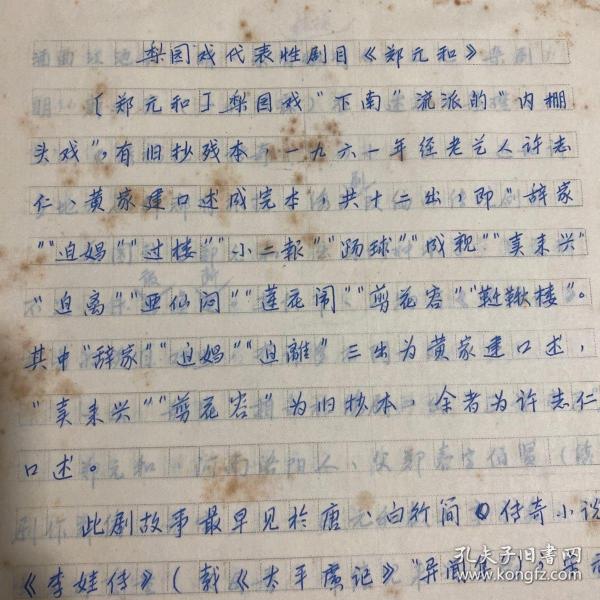 梨园戏代表性剧目《郑元和》
［郑元和］梨园戏“下南”流派的“内棚
头戏”，有旧抄残本，一九六一年经老艺人许志
仁、黄家建口述成完本，共十二出，即“辞家
”“迫娼”“过楼”“小二報”“踢球”“成親”“卖来兴”
“迫离”“亚仙问”“莲花闹”“剪花容”“鞦韆楼”。
其中“辞家”“迫娼”“迫離”三出为黄家建口述，
“卖来兴”“剪花容”为旧抄本，余者为许志仁
口述。
此剧故事最早见於唐 白行间 传奇小说
《李娃传》（载《太平廣记》
孔夫子旧书网
www.kongfz.com